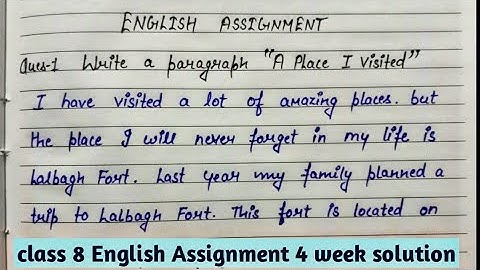 ENGLISH ASSIGNMENT
Ques-1 Write a paragraph "A Place I Visited"
I have visited a lot of amazing places. but
the place I will never forget in my life is
Lalbagh Fort. Last year my family planned a
trip to Lalbagh Fort. This fort is located on
class 8 English Assignment 4 week solution